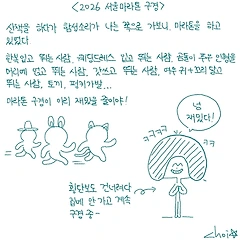 <2026 서울마라톤 구경>
산책을 하다가 함성소리가 나는 쪽으로 가보니, 마라톤을 하고
있었다.
한복입고 뛰는 사람, 웨딩드레스 입고 뛰는 사람, 곰돌이 푸우 인형을
머리에 얹고 뛰는 사람, 갓쓰고 뛰는 사람, 여우 귀+꼬리 달고
뛰는 사람, 토끼, 펭귄가발...
마라톤 구경이 이리 재밌을 줄이야!
넘
재밌다!
ㅋㅋㅋ
ㅋㅋㅋ
횡단보도 건너려다
집에 안 가고 계속
구경 중~
choi